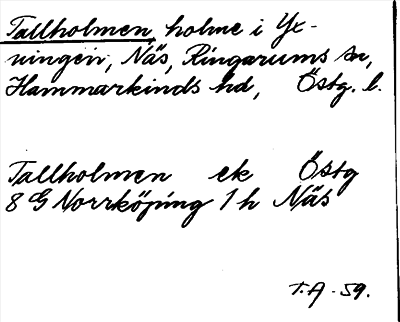 Tallholmen, holme i Yx-
ningen, Näs, Ringarums sn,
Hammarkinds hd, Östg. l.
Tallholmen ek Östg
8 G Norrköping 1 h Näs
T.A. 59.